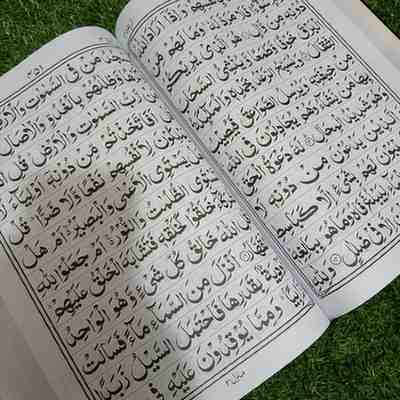 وَاِذَآ اَرَادَ
لَهٗ وَمَا لَهُمْ مِّنْ
دُوْنِهٖ مِنْ وَّالٍ هُوَ الَّذِیْ یُرِیْكُمُ
الْبَرْقَ خَوْفًا وَّطَمَعًا وَّیُنْشِئُ السَّحَابَ
الثِّقَالَ وَیُسَبِّحُ الرَّعْدُ بِحَمْدِهٖ وَالْمَلٰٓئِكَةُ
مِنْ خِیْفَتِهٖ وَیُرْسِلُ الصَّوَاعِقَ فَیُصِیْبُ
بِهَا مَنْ یَّشَآءُ وَهُمْ یُجَادِلُوْنَ فِی اللّٰهِ
وَهُوَ شَدِیْدُ الْمِحَالِ لَهٗ دَعْوَةُ الْحَقِّ
وَالَّذِیْنَ یَدْعُوْنَ مِنْ دُوْنِهٖ
لَهُمْ بِشَیْءٍ اِلَّا كَبَاسِطِ
لِیَبْلُغَ فَاهُ وَمَا هُوَ بِبَالِغِهٖ
اِلَّا فِیْ ضَلٰلٍ وَلِلّٰهِ
مَنْ فِی السَّمٰوٰتِ وَالْاَرْضِ
وَّظِلٰلُهُمْ بِالْغُدُوِّ وَالْاٰصَالِ
رَّبُّ السَّمٰوٰتِ وَالْاَرْضِ قُلِ اللّٰهُ
اَفَاتَّخَذْتُمْ مِّنْ دُوْنِهٖۤ اَوْلِیَآءَ لَا
لِاَنْفُسِهِمْ نَفْعًا وَّلَا ضَرًّا قُلْ
یَسْتَوِی الْاَعْمٰی وَالْبَصِیْرُ اَمْ هَلْ
تَسْتَوِی الظُّلُمٰتُ وَالنُّوْرُ اَمْ جَعَلُوْا لِلّٰهِ
خَلَقُوْا كَخَلْقِهٖ فَتَشَابَهَ الْخَلْقُ عَلَیْهِمْ
قُلِ اللّٰهُ خَالِقُ كُلِّ شَیْءٍ وَّهُوَ الْوَاحِدُ
الْقَهَّارُ اَنْزَلَ مِنَ السَّمَآءِ مَآءً فَسَالَتْ
اَوْدِیَةٌۢ بِقَدَرِهَا فَاحْتَمَلَ السَّیْلُ زَبَدًا
رَّابِیًا وَمِمَّا یُوْقِدُوْنَ عَلَیْهِ فِی